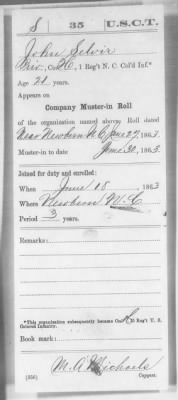 S 35 U.S.C.T.
John Selvir
Priv., Co. K, 1 Reg't N. C. Col'd Inf.*
Age 21 years.
Appears on
Company Muster-in Roll
of the organization named above. Roll dated
Near Newbern N.C. June 29, 1863.
Muster-in to date June 30, 1863.
Joined for duty and enrolled:
When June 18, 1863
Where Newbern N.C.
Period 3 years.
Remarks:
*This organization subsequently became Co. K 35 Reg't U. S.
Colored Infantry.
Book mark:
(356)
Copyist.